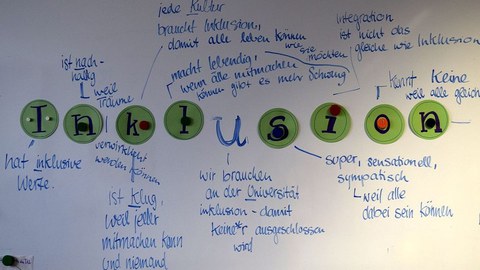 jede Kultur
braucht Inklusion,
damit alle leben können
wie sie möchten
Integration
ist nicht das
gleiche wie Inklusion
ist nach-
haltig
weil
Träume
verwirklicht
werden können
macht lebendig,
wenn alle mitmachen
können gibt es mehr Schwung
kennt keine
weil alle gleich
Inklusion
hat inklusive
Werte.
ist klug,
weil jeder
mitmachen kann
und niemand
wir brauchen
an der Universität
inklusion - damit
keine*r ausgeschlossen
wird
super, sensationell,
sympatisch
weil alle
dabei sein können